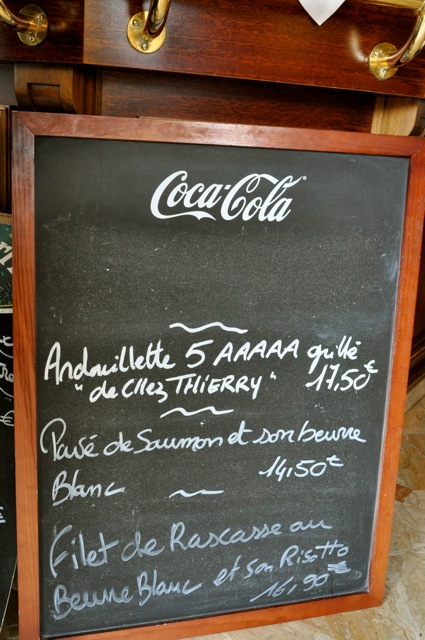 Coca-Cola
Andouillette 5 AAAAA grillé
"de Chez THIERRY" 17,50€
Pavé de Saumon et son beurre
Blanc 14,50€
Filet de Rascasse au
Beurre Blanc et son Risotto
16,90€